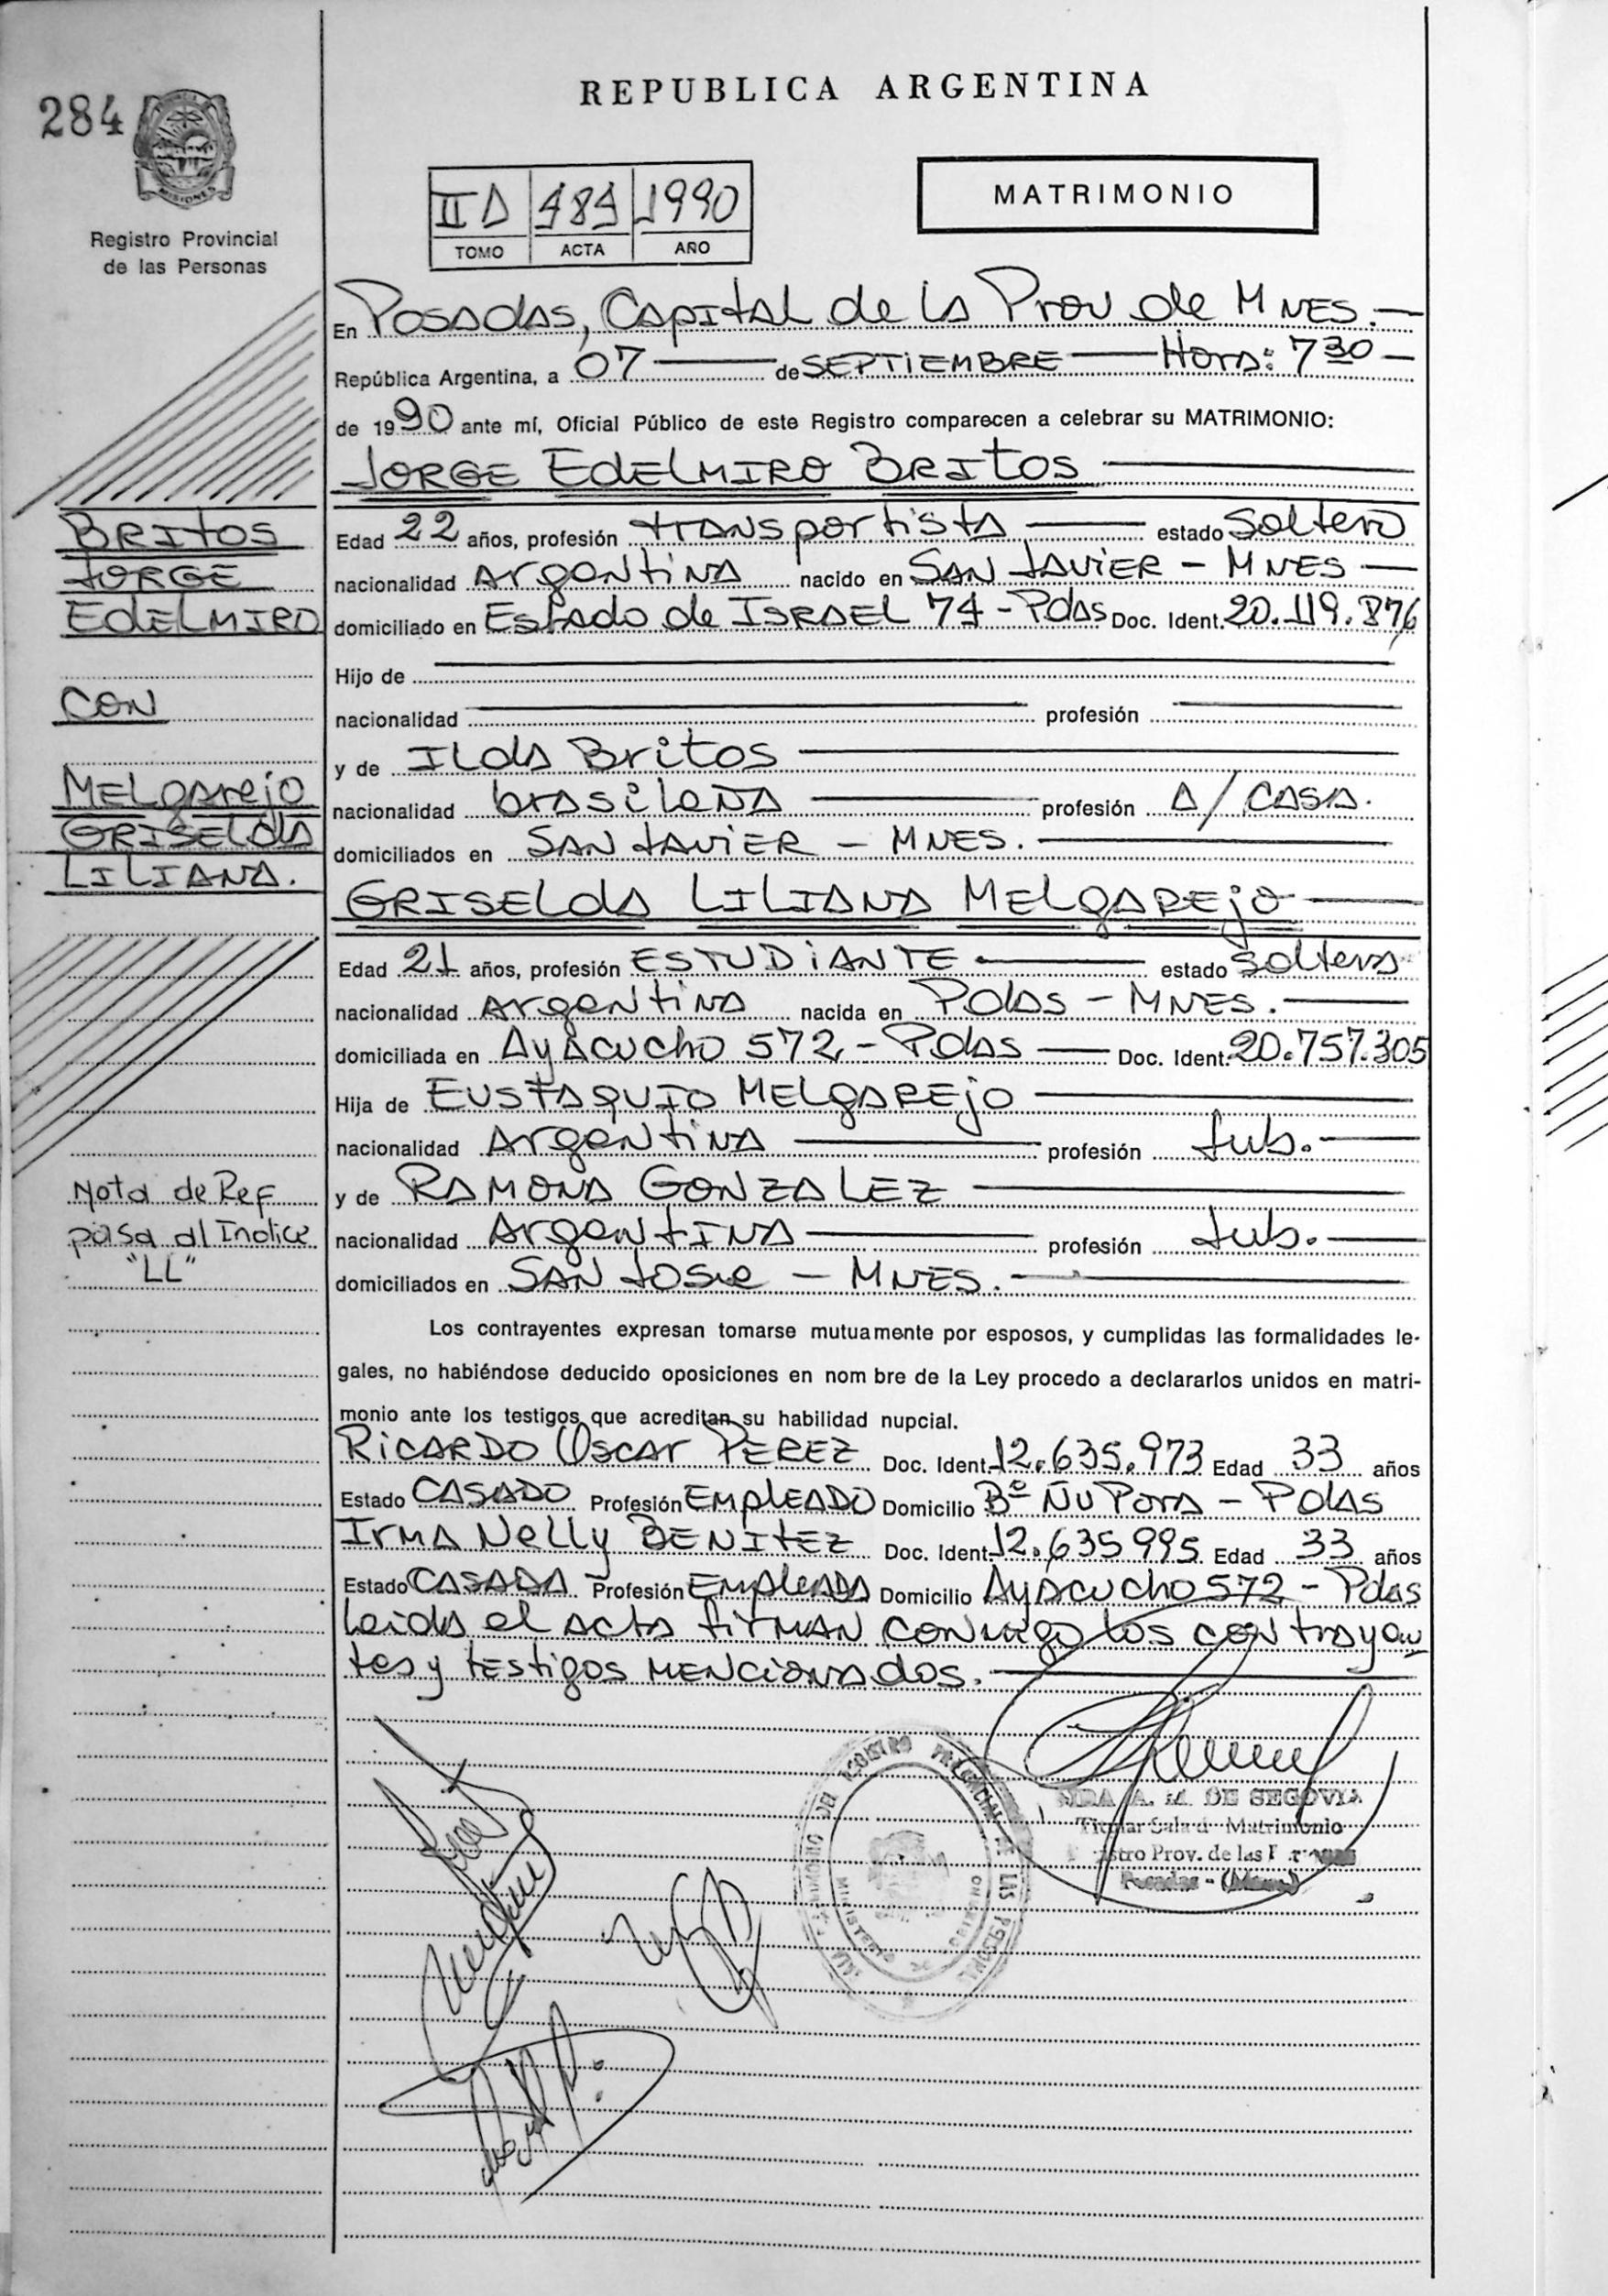 REPUBLICA ARGENTINA
284
MISIONES
Registro Provincial
de las Personas
II D 1990
TOMO ACTA AÑO
MATRIMONIO
En Posadas, Capital de la Prov de Mnes.
República Argentina, a 07 de SEPTIEMBRE Hora: 7 30
de 1990 ante mí, Oficial Público de este Registro comparecen a celebrar su MATRIMONIO:
JORGE EdELMIRO BRITOS
Edad 22 años, profesión transportista estado Soltero
nacionalidad Argentina nacido en SAN JAVIER - MNES
domiciliado en Estado de ISRAEL 74 - Pdas Doc. Ident. 20.119.876
Hijo de
nacionalidad profesión
y de ILda Britos
nacionalidad brasileña profesión A/ CASA.
domiciliados en SAN JAVIER - MNES.
GRISELdA LILIANA MELgAREjO
Edad 21 años, profesión ESTUDiANTE estado Soltera
nacionalidad Argentina nacida en Pdas - MNES.
domiciliada en Ayacucho 572 - Pdas Doc. Ident. 20.757.305
Hija de EUSTAQUIO MELgAREjO
nacionalidad Argentina profesión Jub.
y de RAMONA GONZALEZ
nacionalidad Argentina profesión Jub.
domiciliados en SAN JOSE - MNES.
Los contrayentes expresan tomarse mutuamente por esposos, y cumplidas las formalidades le-
gales, no habiéndose deducido oposiciones en nom bre de la Ley procedo a declararlos unidos en matri-
monio ante los testigos que acreditan su habilidad nupcial.
RICARDO OSCAR PEREZ Doc. Ident. 12.635.973 Edad 33 años
Estado CASADO Profesión EMPLEADO Domicilio Bº Ñu Pora - Pdas
IRMA Nelly BENITEZ Doc. Ident. 12.635995 Edad 33 años
Estado CASADA Profesión EMPLEADA Domicilio Ayacucho 572 - Pdas
Leida el acta firman conmigo los contrayen
tes y testigos mencionados.
BRITOS
JORGE
EdELMIRO
CON
MELgAREjO
GRISELdA
LILIANA.
Nota de Ref
pasa al Indice
"LL"
A. M. DE SEGOVIA
Titular Sala d Matrimonio
stro Prov. de las
Posadas - (Mnes)